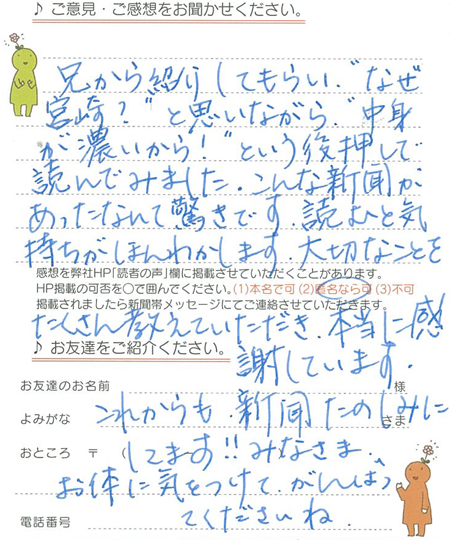 ♪ ご意見・ご感想をお聞かせください。
兄から紹介してもらい、"なぜ
宮崎？"と思いながら、"中身
が濃いから！"という後押しで
読んでみました。こんな新聞が
あったなんて驚きです。読むと気
持ちがほんわかします。大切なことを
感想を弊社HP「読者の声」欄に掲載させていただくことがあります。
HP掲載の可否を○で囲んでください。(1)本名で可 (2)匿名なら可 (3)不可
掲載されましたら新聞帯メッセージにてご連絡させていただきます。
たくさん教えていただき、本当に感
♪ お友達をご紹介ください。
謝しています。
お友達のお名前 様
よみがな さま
これからも、新聞たのしみに
おところ 〒 (
してます!!みなさま、
お体に気をつけて、がんばっ
てくださいね。
電話番号